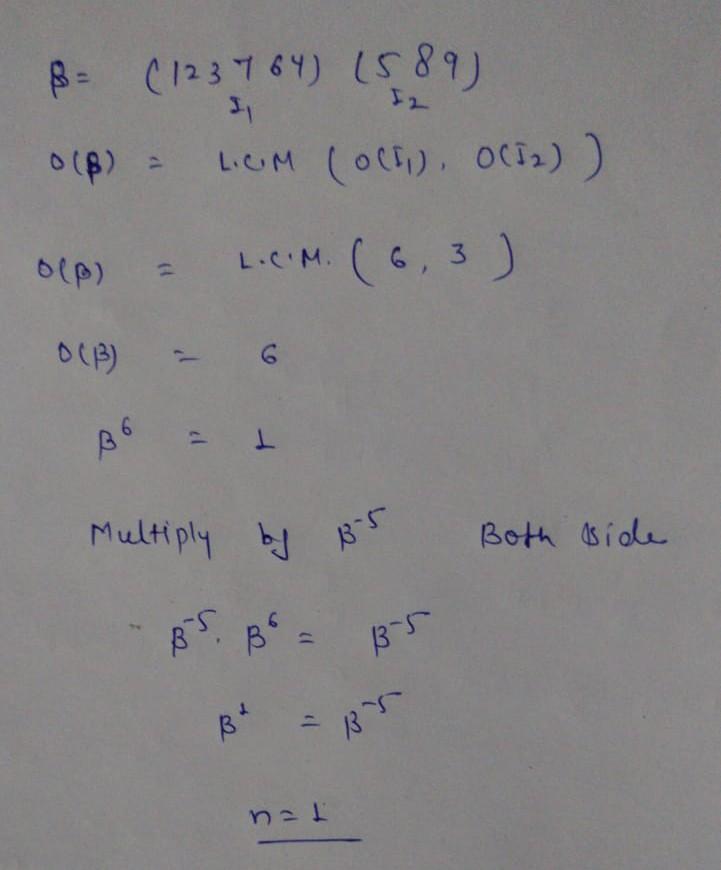 β = (123764) (589)
I₁ I₂
O(β) = L.C.M (O(I₁), O(I₂))
O(β) = L.C.M. (6, 3)
O(β) = 6
β⁶ = 1
Multiply by β⁻⁵ Both side
β⁻⁵. β⁶ = β⁻⁵
β¹ = β⁻⁵
n = 1